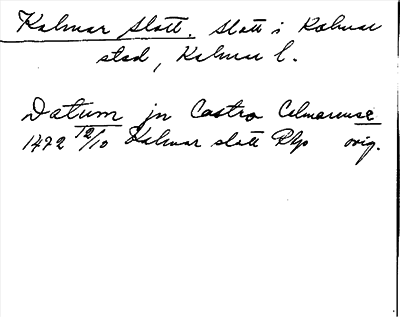 Kalmar slott. Slott i Kalmar
stad, Kalmar l.
Datum jn Castro Calmarnense
1472 12/10 Kalmar slott RAp orig.